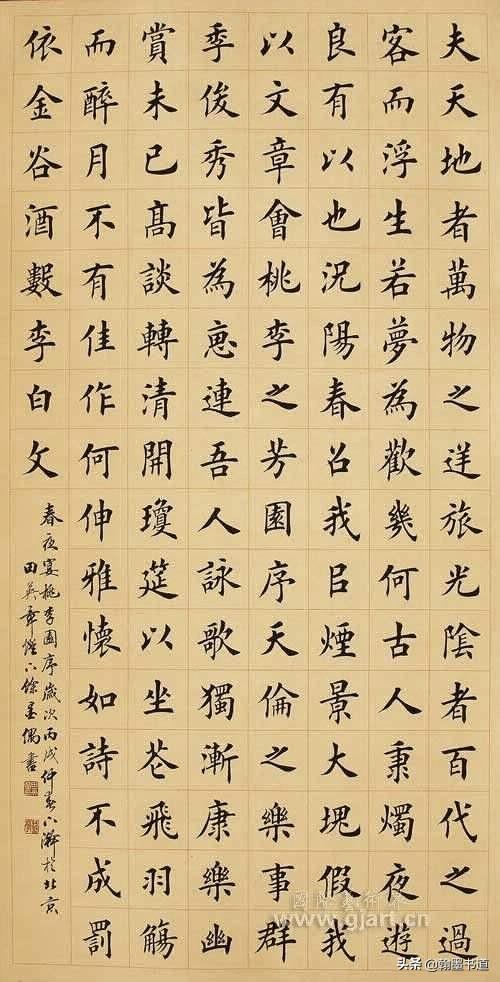 夫天地者萬物之逆旅光陰者百代之過
客而浮生若夢為歡幾何古人秉燭夜遊
良有以也況陽春召我㠯煙景大塊假我
以文章會桃李之芳園序天倫之樂事群
季俊秀皆為惠連吾人詠歌獨漸康樂幽
賞未已高談轉清開瓊筵以坐花飛羽觴
而醉月不有佳作何伸雅懷如詩不成罰
依金谷酒數李白文
春夜宴桃李園序歲次丙戌仲春下澣於北京
田英章燈下餘墨偶書
www.gjart.cn
头条 @翰墨书道